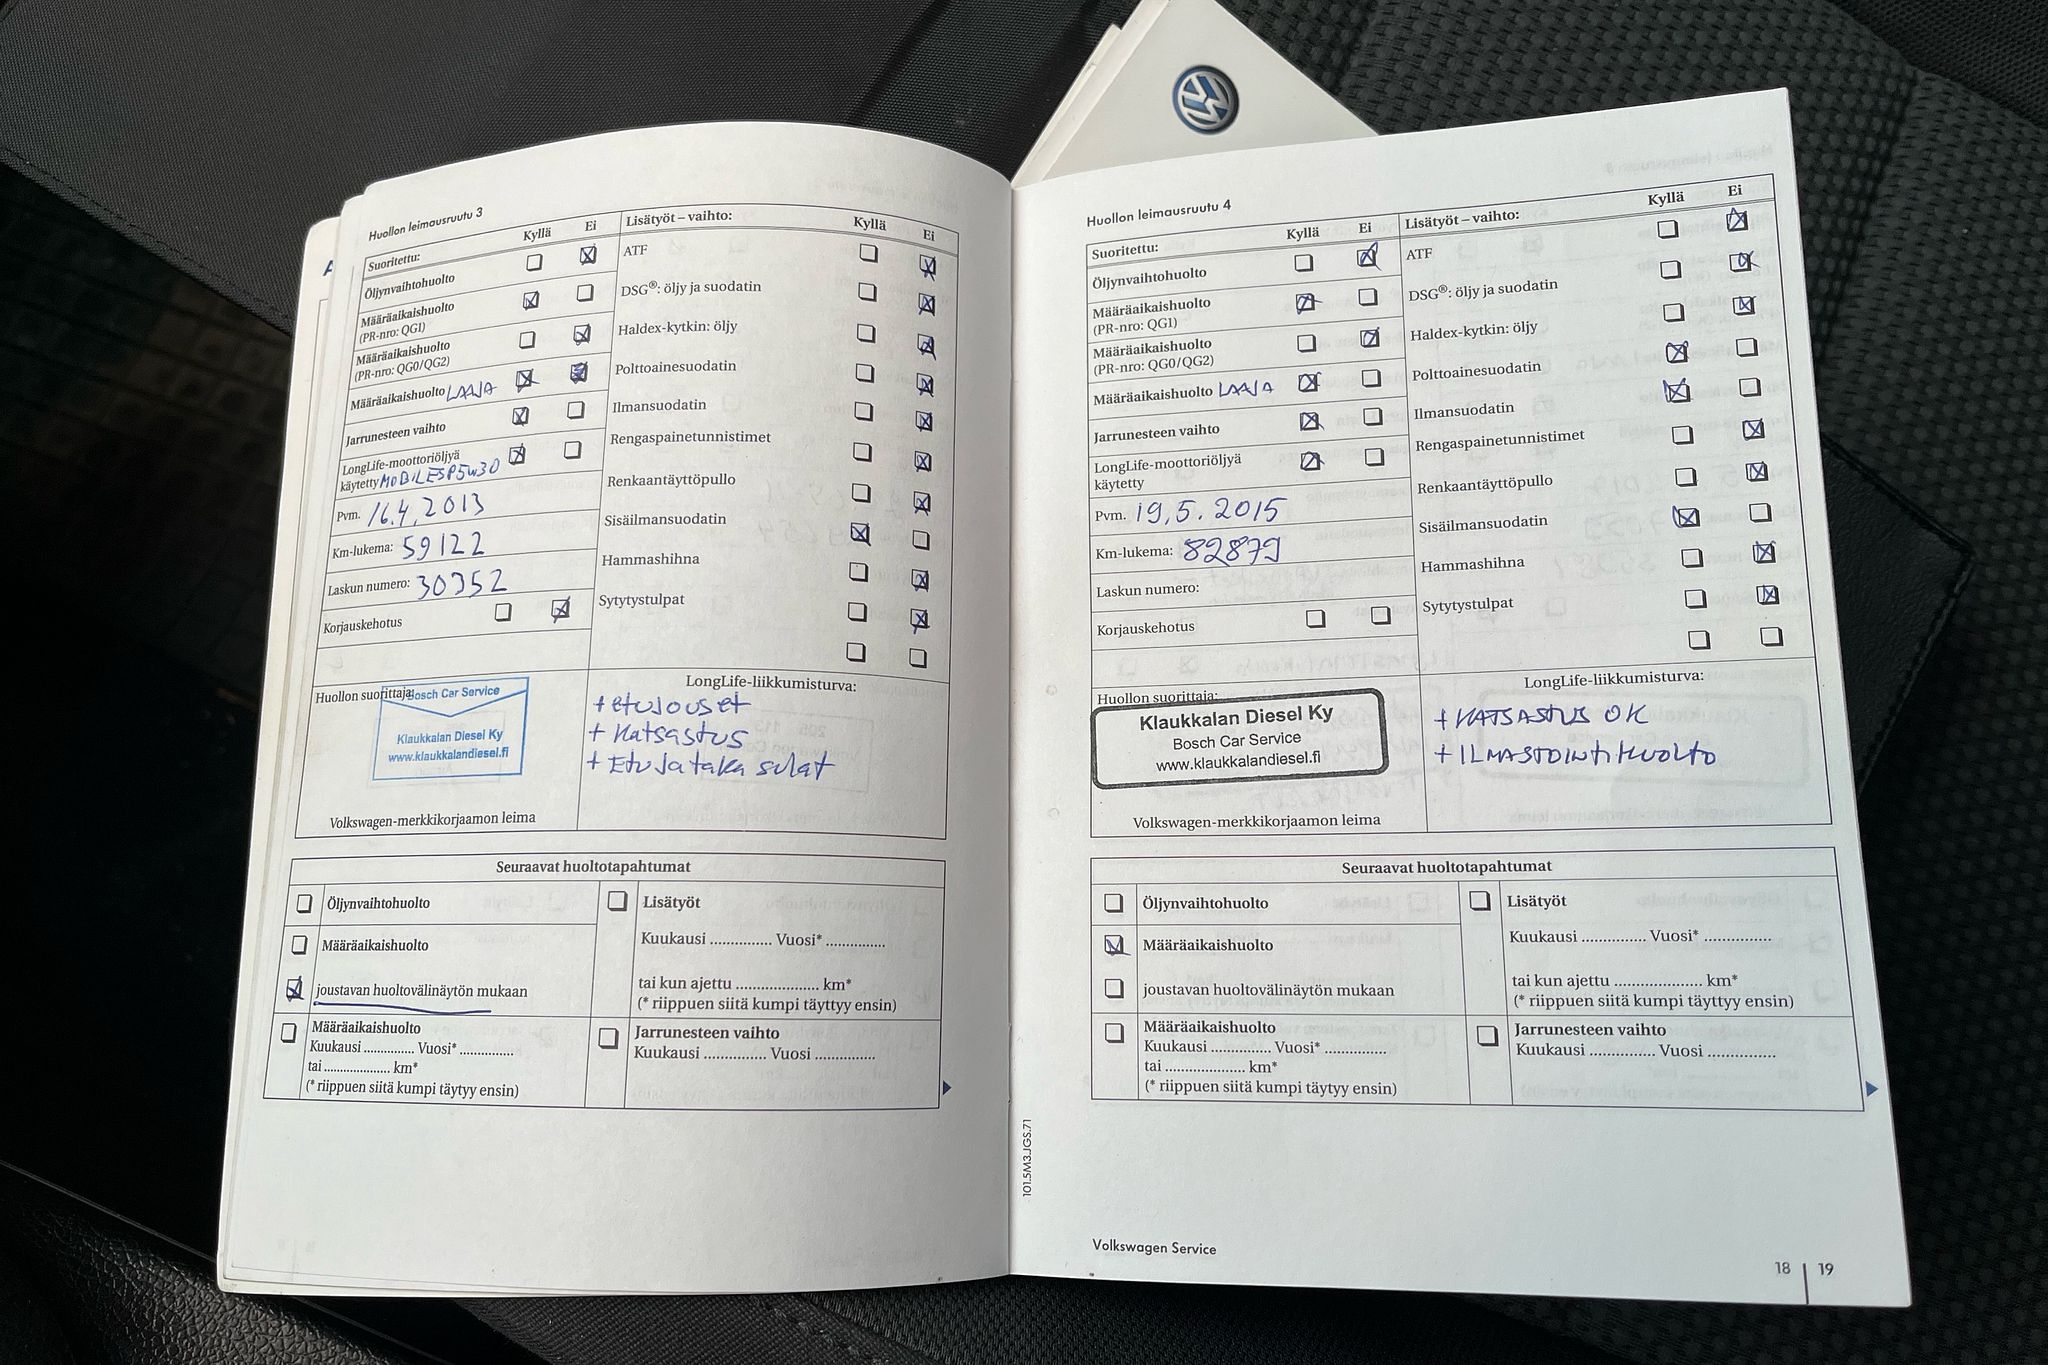 Huollon leimausruutu 3
Suoritettu: Kyllä Ei
Öljynvaihtohuolto
Määräaikaishuolto
(PR-nro: QG1)
Määräaikaishuolto
(PR-nro: QG0/QG2)
Määräaikaishuolto LAAJA
Jarrunesteen vaihto
LongLife-moottoriöljyä
käytetty MOBIL ESP 5w30
Pvm. 16.4.2013
Km-lukema: 59122
Laskun numero: 30352
Korjauskehotus
Lisätyöt – vaihto: Kyllä Ei
ATF
DSG®: öljy ja suodatin
Haldex-kytkin: öljy
Polttoainesuodatin
Ilmansuodatin
Rengaspainetunnistimet
Renkaantäyttöpullo
Sisäilmansuodatin
Hammashihna
Sytytystulpat
Huollon suorittaja:
Bosch Car Service
Klaukkalan Diesel Ky
www.klaukkalandiesel.fi
Volkswagen-merkkikorjaamon leima
LongLife-liikkumisturva:
+ etujouset
+ Katsastus
+ Etu ja taka sulat
Seuraavat huoltotapahtumat
Öljynvaihtohuolto
Määräaikaishuolto
joustavan huoltovälinäytön mukaan
Määräaikaishuolto
Kuukausi .............. Vuosi* ..............
tai .................... km*
(* riippuen siitä kumpi täytyy ensin)
Lisätyöt
Kuukausi .............. Vuosi* ..............
tai kun ajettu .................... km*
(* riippuen siitä kumpi täyttyy ensin)
Jarrunesteen vaihto
Kuukausi .............. Vuosi ..............
Huollon leimausruutu 4
Suoritettu: Kyllä Ei
Öljynvaihtohuolto
Määräaikaishuolto
(PR-nro: QG1)
Määräaikaishuolto
(PR-nro: QG0/QG2)
Määräaikaishuolto LAAJA
Jarrunesteen vaihto
LongLife-moottoriöljyä
käytetty
Pvm. 19.5.2015
Km-lukema: 82879
Laskun numero:
Korjauskehotus
Lisätyöt – vaihto: Kyllä Ei
ATF
DSG®: öljy ja suodatin
Haldex-kytkin: öljy
Polttoainesuodatin
Ilmansuodatin
Rengaspainetunnistimet
Renkaantäyttöpullo
Sisäilmansuodatin
Hammashihna
Sytytystulpat
Huollon suorittaja:
Klaukkalan Diesel Ky
Bosch Car Service
www.klaukkalandiesel.fi
Volkswagen-merkkikorjaamon leima
LongLife-liikkumisturva:
+ KATSASTUS OK
+ ILMASTOINTIHUOLTO
Seuraavat huoltotapahtumat
Öljynvaihtohuolto
Määräaikaishuolto
joustavan huoltovälinäytön mukaan
Määräaikaishuolto
Kuukausi .............. Vuosi* ..............
tai .................... km*
(* riippuen siitä kumpi täytyy ensin)
Lisätyöt
Kuukausi .............. Vuosi* ..............
tai kun ajettu .................... km*
(* riippuen siitä kumpi täyttyy ensin)
Jarrunesteen vaihto
Kuukausi .............. Vuosi ..............
101.5M3.JGS.71
Volkswagen Service
18 | 19